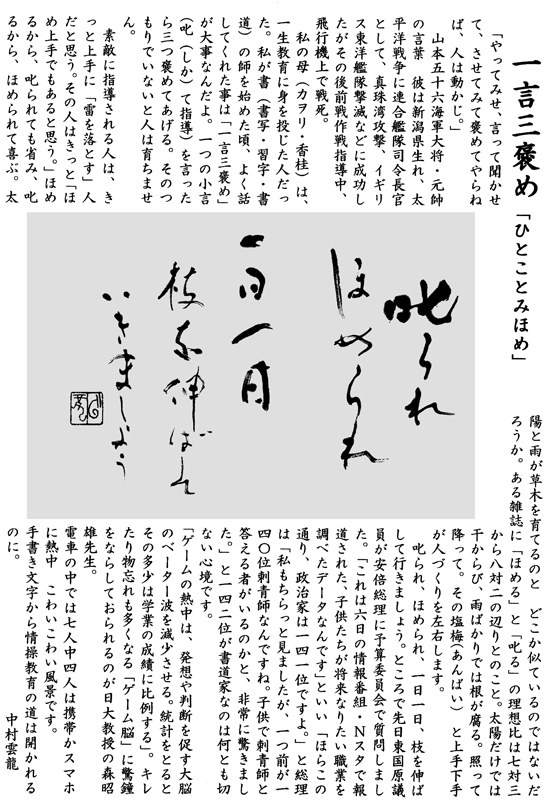 一言三褒め「ひとことみほめ」
「やってみせ、言って聞かせ
て、させてみて褒めてやらね
ば、人は動かじ。」
山本五十六海軍大将・元帥
の言葉　彼は新潟県生れ、太
平洋戦争に連合艦隊司令長官
として、真珠湾攻撃、イギリ
ス東洋艦隊撃滅などに成功し
たがその後前戦作戦指導中、
飛行機上で戦死。
私の母（カヲリ・香桂）は、
一生教育に身を投じた人だっ
た。私が書（書写・習字・書
道）の師を始めた頃、よく話
してくれた事は「一言三褒め」
が大事なんだよ。一つの小言
（叱（しか）て指導）を言った
ら三つ褒めてあげる。そのつ
もりでいないと人は育ちませ
ん。
素敵に指導される人は、き
っと上手に「雷を落とす」人
だと思う。その人はきっと「ほ
め上手でもあると思う。」ほめ
るから、叱られても省み、叱
るから、ほめられて喜ぶ。太
叱られ
ほめられ
一日一日
枝を伸ばして
いきましょう
陽と雨が草木を育てるのと　どこか似ているのではないだ
ろうか。ある雑誌に「ほめる」と「叱る」の理想比は七対三
から八対二の辺りとのこと。太陽だけでは
干からび、雨ばかりでは根が腐る。照って
降って。その塩梅（あんばい）と上手下手
が人づくりを左右します。
叱られ、ほめられ、一日一日、枝を伸ば
して行きましょう。ところで先日東国原議
員が安倍総理に予算委員会で質問しまし
た。「これは六日の情報番組・Ｎスタで報
道された、子供たちが将来なりたい職業を
調べたデータなんです」といい「ほらこの
通り、政治家は一四一位ですよ。」と総理
は「私もちらっと見ましたが、一つ前が一
四〇位刺青師なんですね。子供で刺青師と
答える者がいるのかと、非常に驚きまし
た。」と一四二位が書道家なのは何とも切
ない心境です。
「ゲームの熱中は、発想や判断を促す大脳
のベーター波を減少させる。統計をとると
その多少は学業の成績に比例する」。キレ
たり物忘れも多くなる「ゲーム脳」に警鐘
をならしておられるのが日大教授の森昭
雄先生。
電車の中では七人中四人は携帯かスマホ
に熱中　こわいこわい風景です。
手書き文字から情操教育の道は開かれる
のに。
中村雲龍